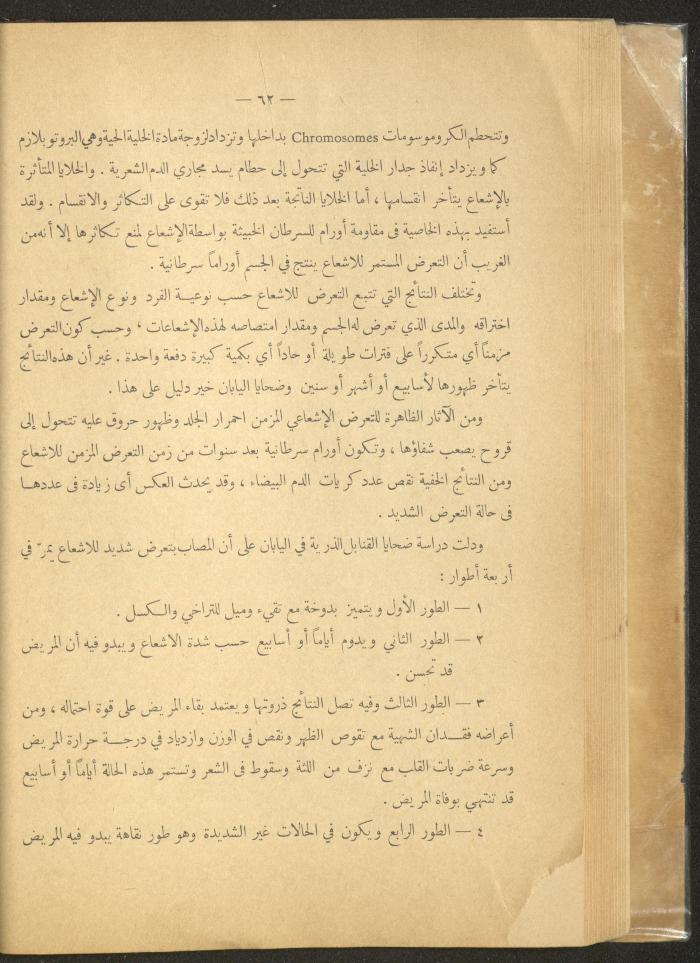 — ٦٢ —
وتتحطم الكروموسومات Chromosomes بداخلها وتزداد لزوجة مادة الخلية الحية وهي البروتوبلازم
كما ويزداد إنفاذ جدار الخلية التي تتحول إلى حطام يسد مجاري الدم الشعرية . والخلايا المتأثرة
بالإشعاع يتأخر انقسامها ، أما الخلايا الناتجة بعد ذلك فلا تقوى على التكاثر والانقسام . ولقد
أستفيد بهذه الخاصية فى مقاومة أورام للسرطان الخبيثة بواسطة الإشعاع لمنع تكاثرها إلا أنه من
الغريب أن التعرض المستمر للاشعاع ينتج في الجسم أوراماً سرطانية .
وتختلف النتائج التي تتبع التعرض للاشعاع حسب نوعية الفرد ونوع الإشعاع ومقدار
اختراقه والمدى الذي تعرض له الجسم ومقدار امتصاصه لهذه الإشعاعات ، وحسب كون التعرض
مزمناً أي متكرراً على فترات طويلة أو حاداً أي بكمية كبيرة دفعة واحدة . غير أن هذه النتائج
يتأخر ظهورها لأسابيع أو أشهر أو سنين وضحايا اليابان خير دليل على هذا .
ومن الآثار الظاهرة للتعرض الإشعاعي المزمن احمرار الجلد وظهور حروق عليه تتحول إلى
قروح يصعب شفاؤها ، وتكون أورام سرطانية بعد سنوات من زمن التعرض المزمن للاشعاع
ومن النتائج الخفية نقص عدد كريات الدم البيضاء ، وقد يحدث العكس أى زيادة فى عددها
فى حالة التعرض الشديد .
ودلت دراسة ضحايا القنابل الذرية في اليابان على أن المصاب بتعرض شديد للاشعاع يمرّ في
أربعة أطوار :
١ — الطور الأول ويتميز بدوخة مع تقيء وميل للتراخي والكسل .
٢ — الطور الثاني ويدوم أياماً أو أسابيع حسب شدة الاشعاع ويبدو فيه أن المريض
قد تحسن .
٣ — الطور الثالث وفيه تصل النتائج ذروتها ويعتمد بقاء المريض على قوة احتماله ، ومن
أعراضه فقدان الشهية مع تقوص الظهر ونقص في الوزن وازدياد في درجة حرارة المريض
وسرعة ضربات القلب مع نزف من اللثة وسقوط فى الشعر وتستمر هذه الحالة أياماً أو أسابيع
قد تنتهي بوفاة المريض .
٤ — الطور الرابع ويكون في الحالات غير الشديدة وهو طور نقاهة يبدو فيه المريض